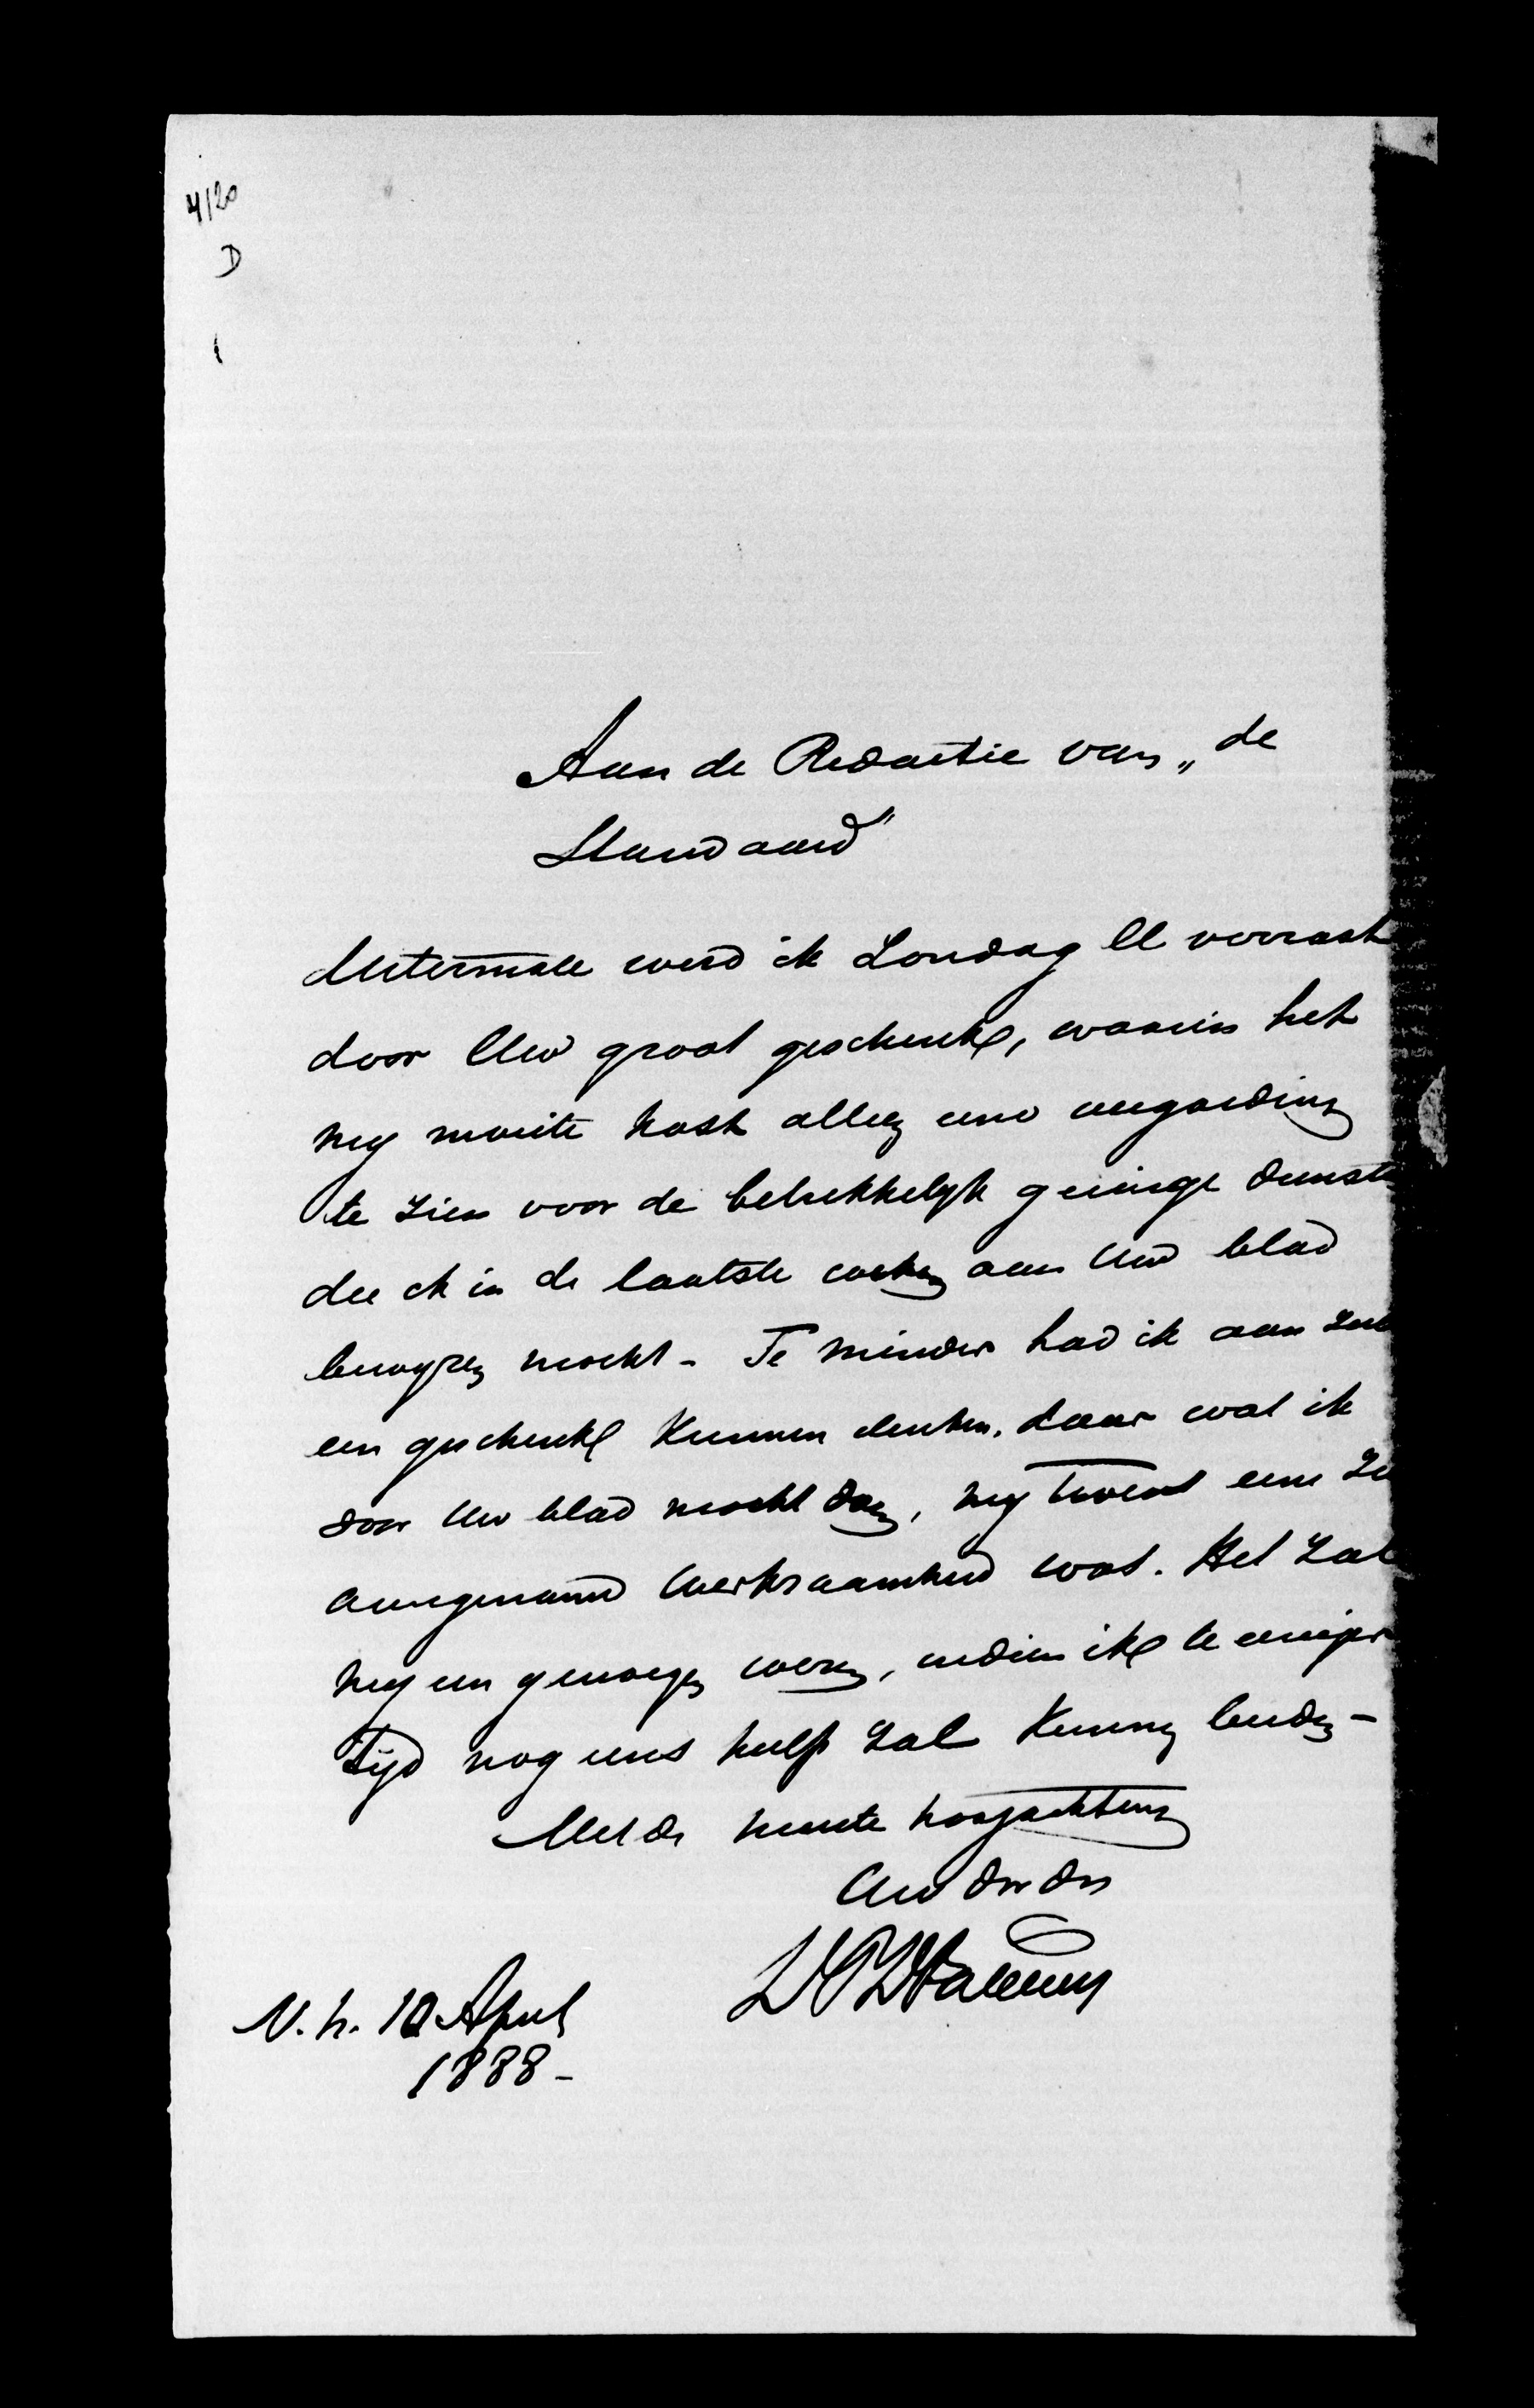 4/20
D
Aan de Redactie van „de
Standaard"
Uitermate werd ik Zondag ll verrast
door Uw groot geschenk, waarin het
my moeite kost alleen eene vergoeding
te zien voor de betrekkelyk geringe dienst
die ik in de laatste weken aan Uw blad
bewyzen mocht - Te minder had ik aan zulk
een geschenk kunnen denken, daar wat ik
voor Uw blad mocht doen, my eene
aangename werkzaamheid was. Het zal
my een genoegen wezen, indien ik te eeniger
tyd nog eens hulp zal kunnen bieden -
Met de meeste hoogachting
Uw dw dr
N. h. 10 April
1888 -